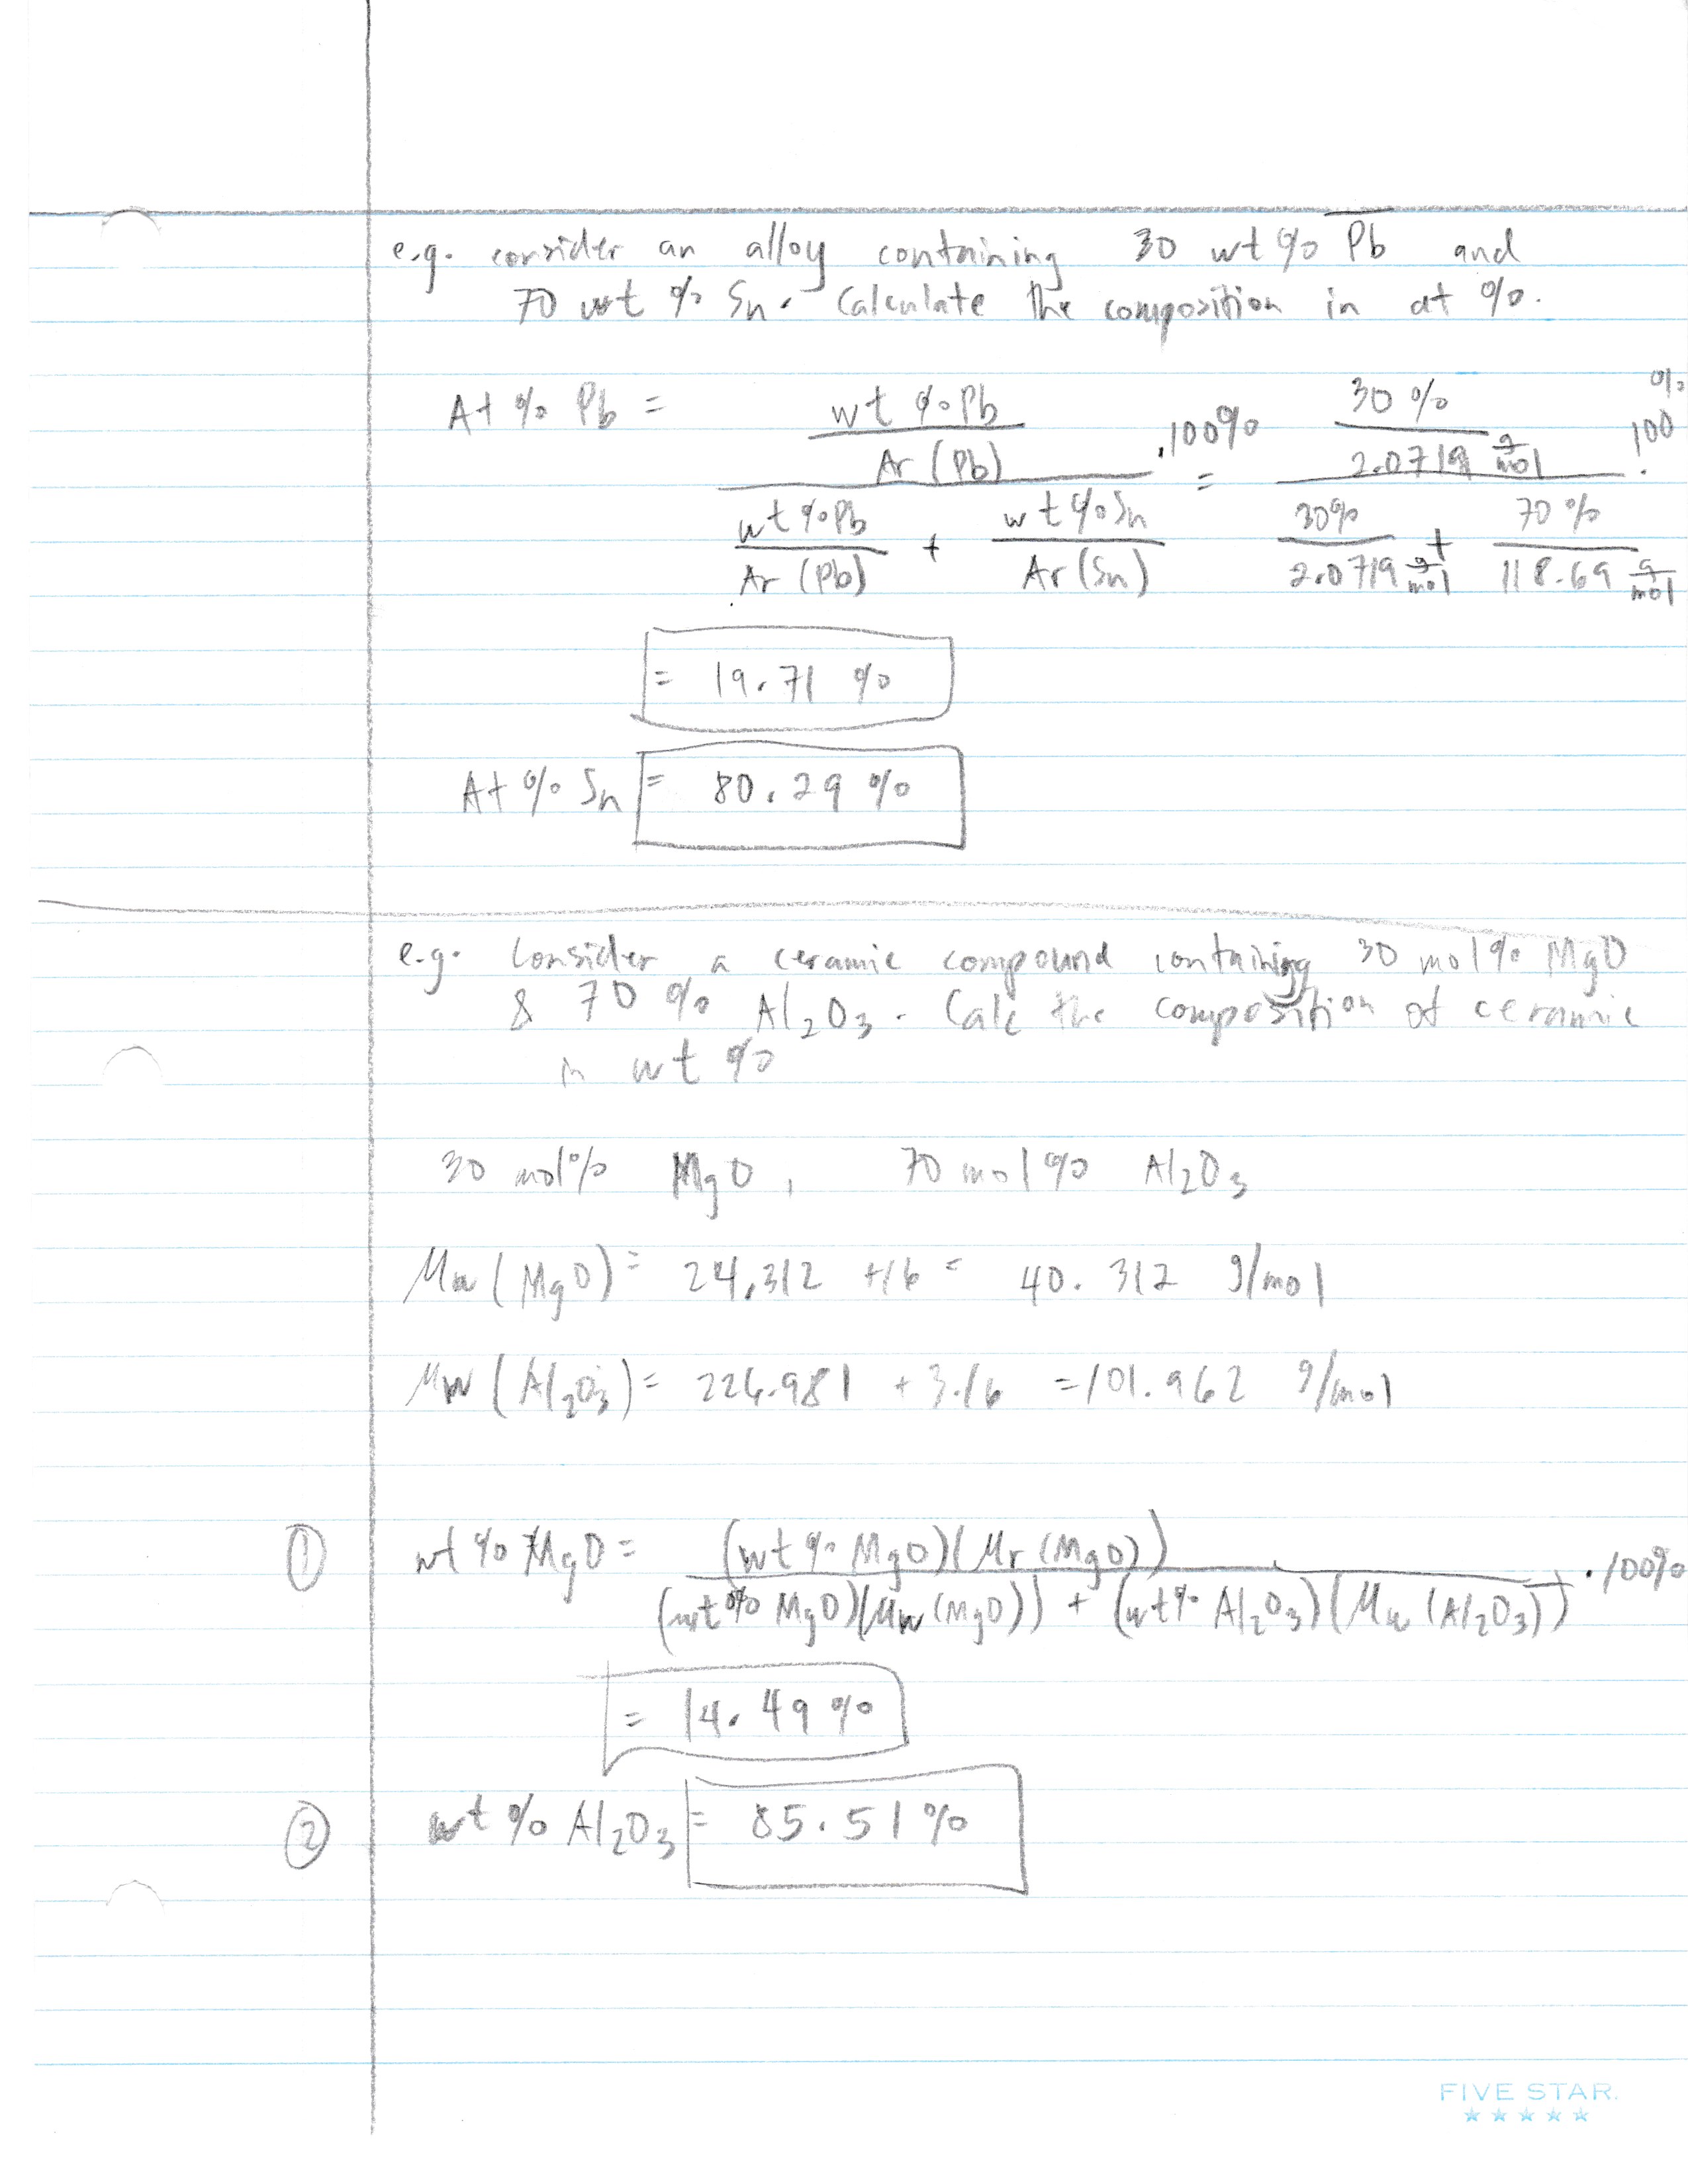 e.g. consider an alloy containing 30 wt % Pb and
70 wt % Sn. Calculate the composition in at %.
At % Pb = wt % Pb / Ar (Pb) / wt % Pb / Ar (Pb) + wt % Sn / Ar (Sn) .100% = 30 % / 2.0719 g/mol / 30% / 2.0719 g/mol + 70 % / 118.69 g/mol . 100 %
= 19.71 %
At % Sn = 80.29 %
e.g. Consider a ceramic compound containing 30 mol % MgO
& 70 % Al2O3. Calc the composition of ceramic
in wt %
30 mol % MgO, 70 mol % Al2O3
Mw (MgO) = 24.312 +16 = 40.312 g/mol
Mw (Al2O3) = 226.981 + 3.16 = 101.962 g/mol
① wt % MgO = (wt % MgO)(Mr (MgO)) / (wt % MgO)(Mw (MgO)) + (wt % Al2O3)(Mw (Al2O3)) . 100%
= 14.49 %
② wt % Al2O3 = 85.51 %
FIVE STAR.